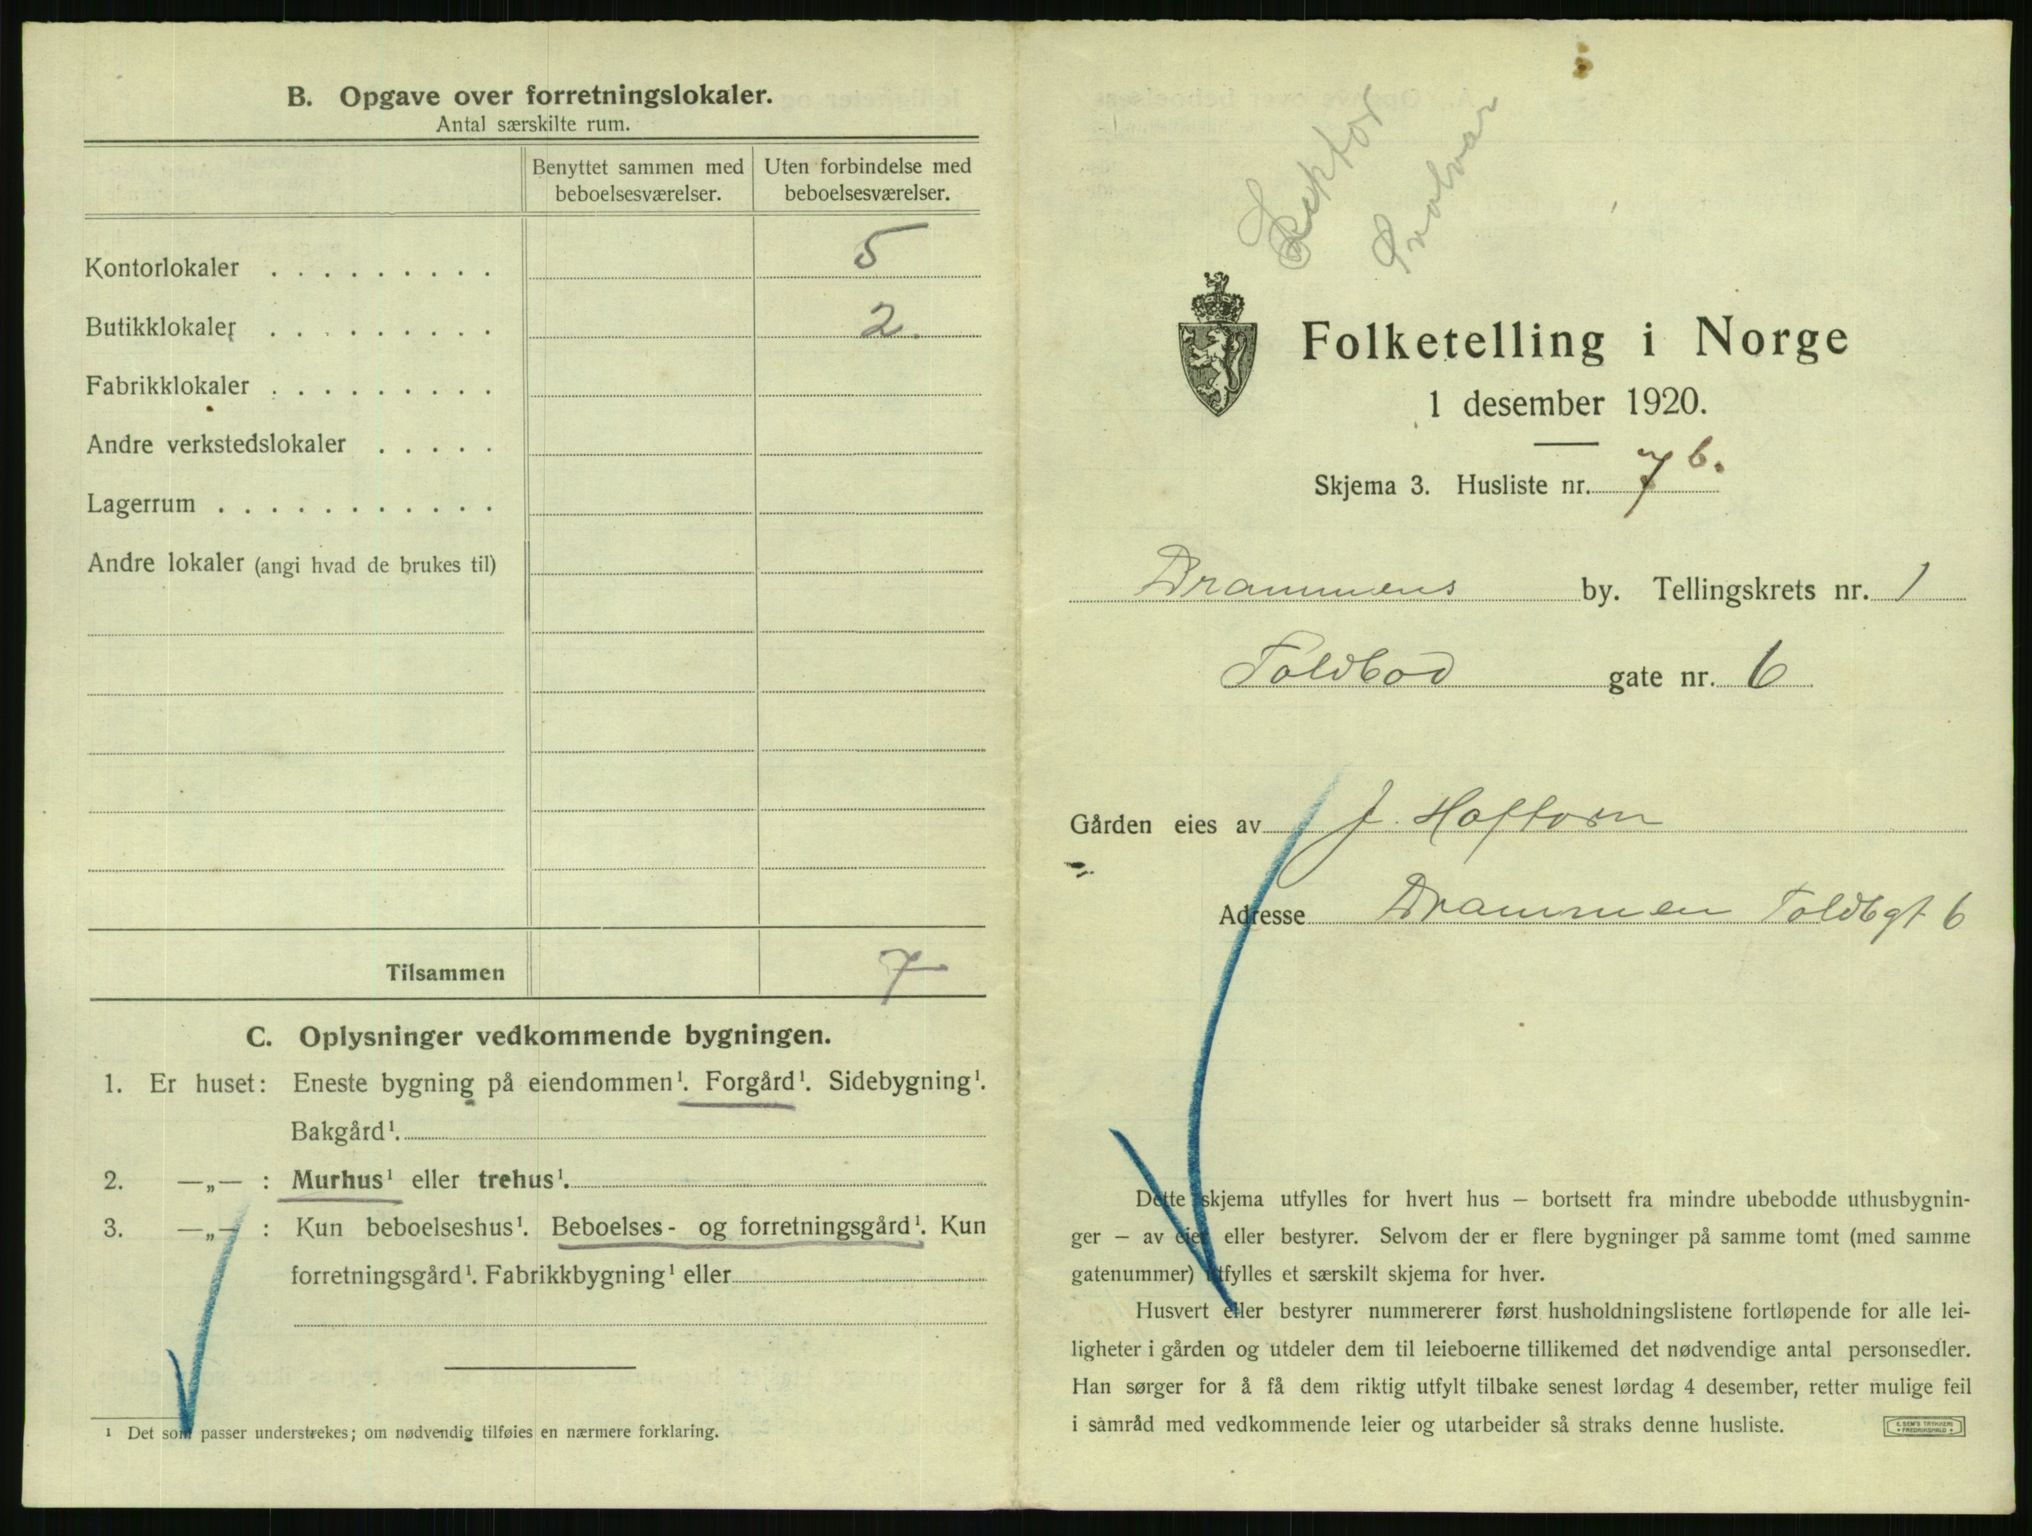 B. Opgave over forretningslokaler.
Antal særskilte rum.
Benyttet sammen med beboelsesværelser.
Uten forbindelse med beboelsesværelser.
Kontorlokaler . . . . . . . . . 5
Butikklokaler . . . . . . . . . 2.
Fabrikklokaler . . . . . . . . .
Andre verkstedslokaler . . . . .
Lagerrum . . . . . . . . . . .
Andre lokaler (angi hvad de brukes til)
Tilsammen 7
C. Oplysninger vedkommende bygningen.
1. Er huset: Eneste bygning på eiendommen¹. Forgård¹. Sidebygning¹.
Bakgård¹.
2. —„— : Murhus¹ eller trehus¹.
3. —„— : Kun beboelseshus¹. Beboelses- og forretningsgård¹. Kun
forretningsgård¹. Fabrikkbygning¹ eller
¹ Det som passer understrekes; om nødvendig tilføies en nærmere forklaring.
Folketelling i Norge
1 desember 1920.
Skjema 3. Husliste nr. 7 b.
Drammens by. Tellingskrets nr. 1
Toldbod gate nr. 6
Gården eies av J. Haftorn
Adresse Drammen Toldbgt 6
Dette skjema utfylles for hvert hus – bortsett fra mindre ubebodde uthusbygnin-
ger – av eier eller bestyrer. Selvom der er flere bygninger på samme tomt (med samme
gatenummer) utfylles et særskilt skjema for hver.
Husvert eller bestyrer nummererer først husholdningslistene fortløpende for alle lei-
ligheter i gården og utdeler dem til leieboerne tillikemed det nødvendige antal personsedler.
Han sørger for å få dem riktig utfylt tilbake senest lørdag 4 desember, retter mulige feil
i samråd med vedkommende leier og utarbeider så straks denne husliste.
E. SEM'S TRYKKERI
FREDRIKSHALD